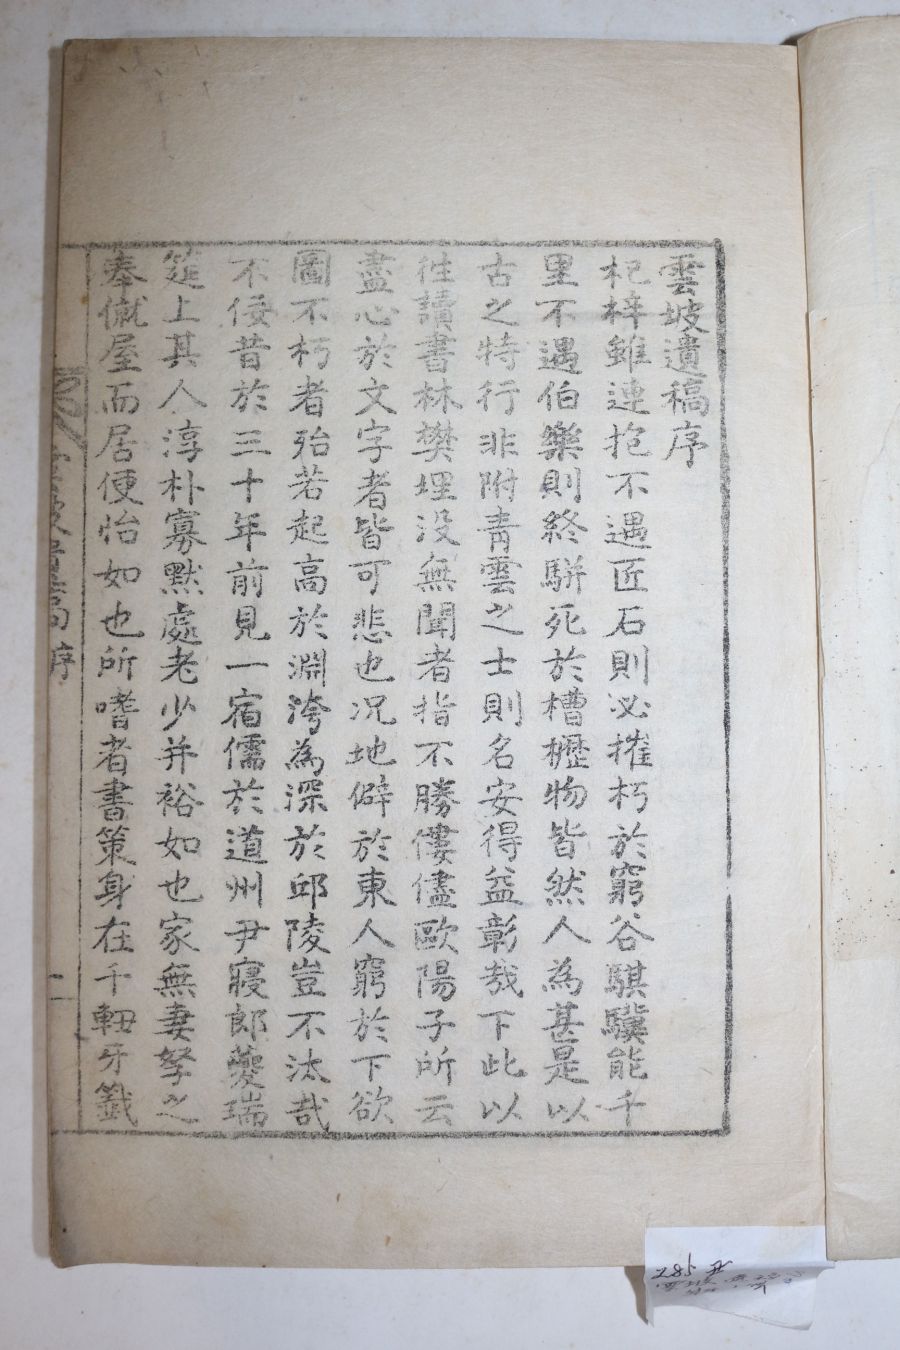 雲坡遺稿序
杞梓雖連抱不遇匠石則必摧朽於窮谷騏驥能千
里不遇伯樂則終騈死於槽櫪物皆然人為甚是以
古之特行非附青雲之士則名安得益彰哉下此以
徃讀書林樊埋没無聞者指不勝僂儘歐陽子所云
盡心於文字者皆可悲也况地僻於東人窮於下欲
圖不朽者殆若起高於淵洿為深於邱陵豈不汰哉
不佞昔於三十年前見一宿儒於道州尹寢郎夔瑞
筵上其人淳朴寡默處老少并裕如也家無妻孥之
奉僦屋而居便怡如也所嗜者書策身在千軸牙籤
序
285